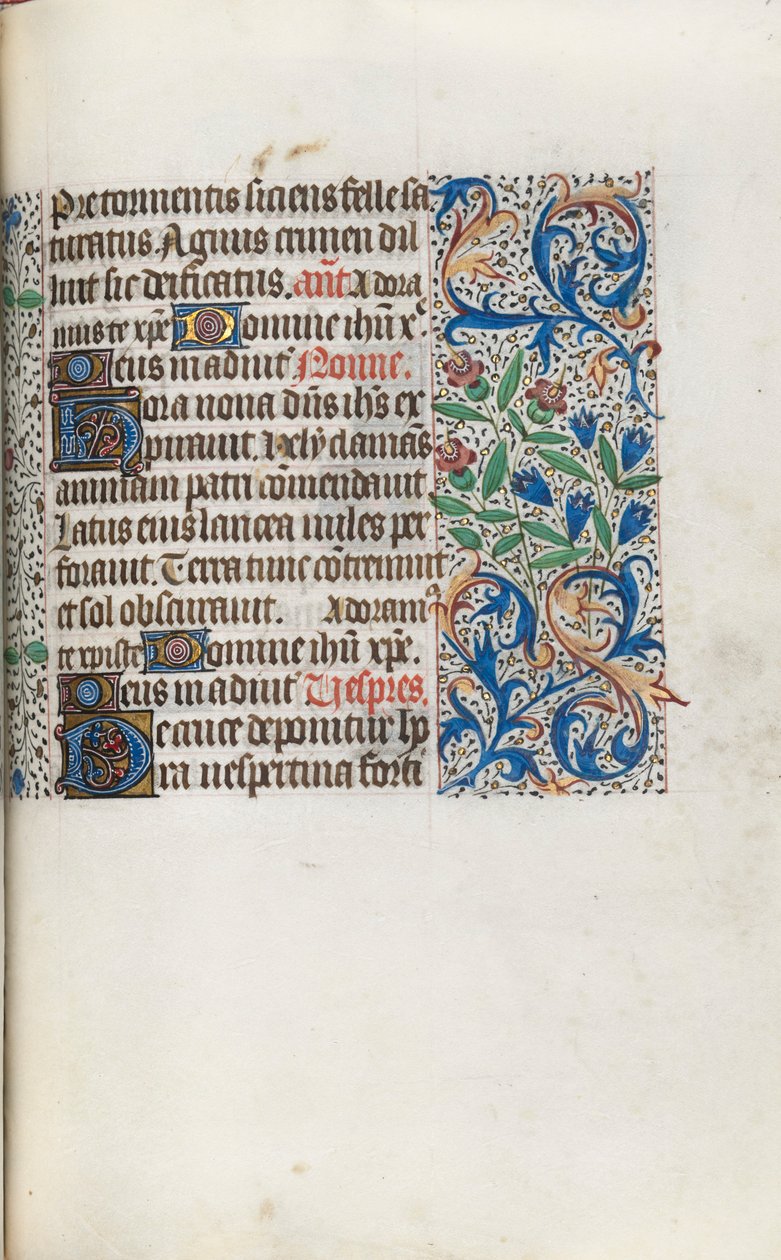 Pre tormentis siciens felle sa
turatus. Agnus crimen dil
luit sic deificatus. ant̃ Adora
mus te xp̃e Domine ihũ x̃e
Deus in adiut' Nonne.
Hora nona dñs ihs̃ ex
pirauit. hely clamãs
animam patri cõmendauit
Latus eius lancea miles per
forauit. Terra tunc cõtremuit
et sol obscurauit. Adoramꝰ
te xpiste Domine ihũ xp̃e.
Deus in adiut' Vespres.
De cruce deponitur ho
ra uespertina forti